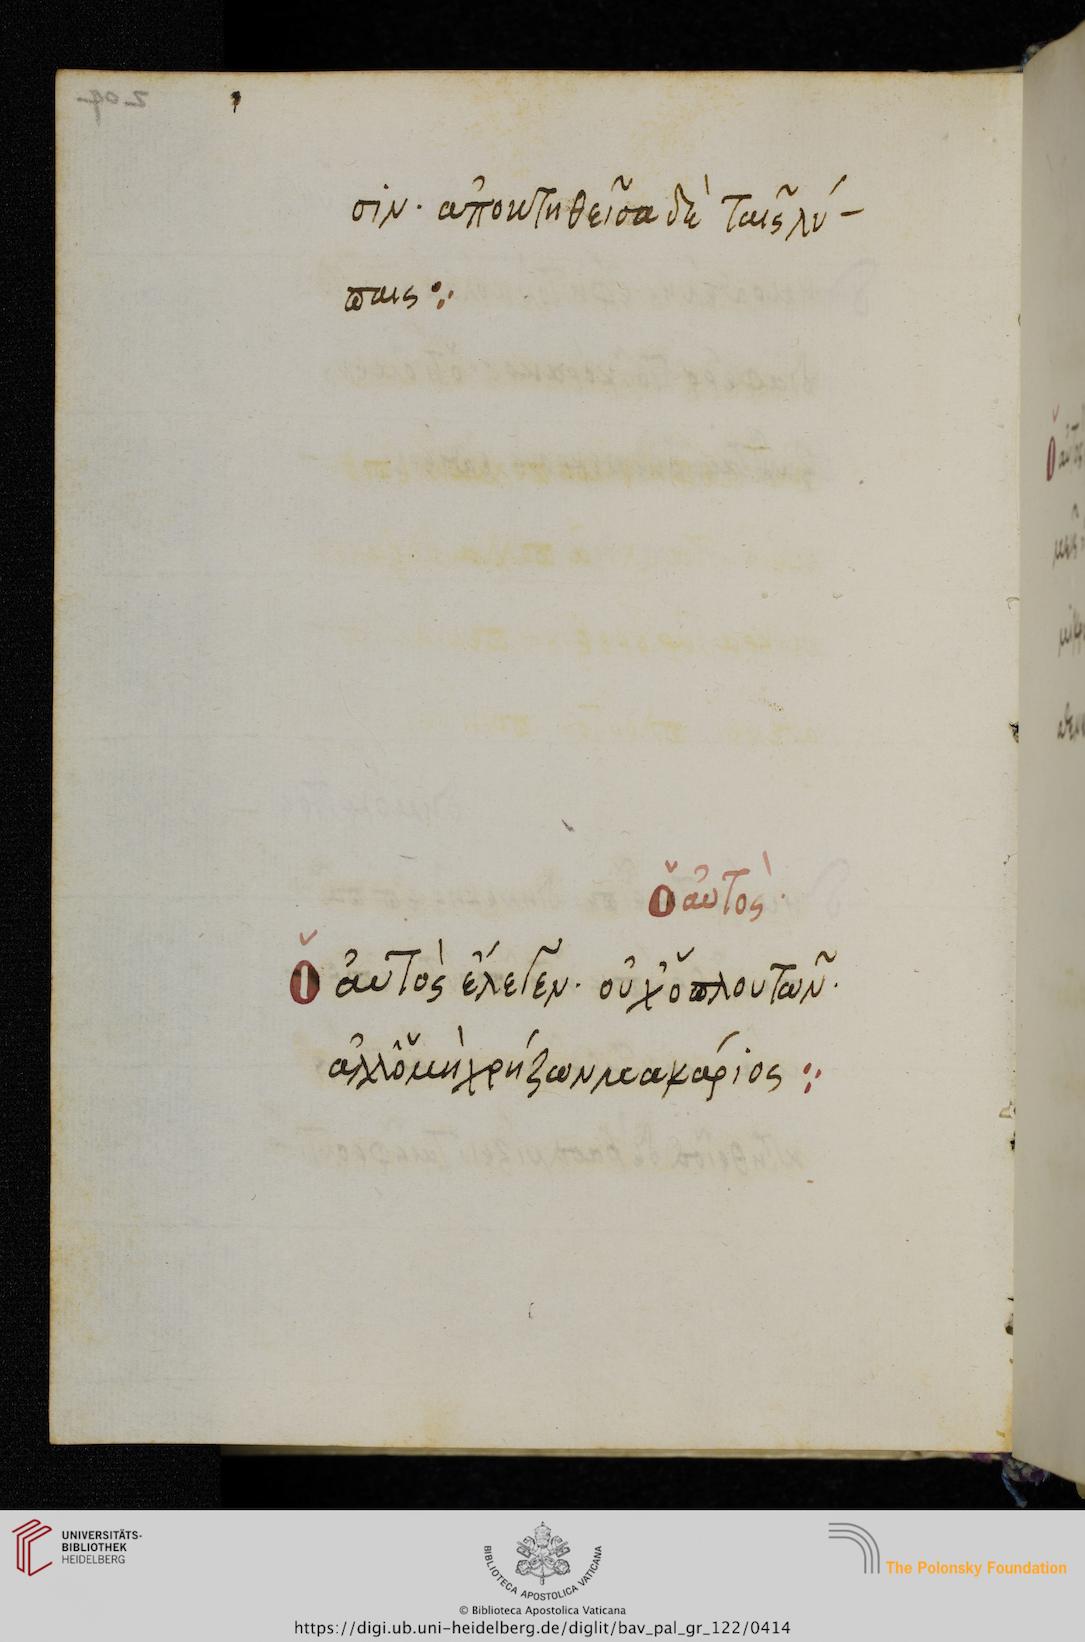 σιν· ἀποκτηθεῖσα δὲ ταῖς λύ-
παις:
ὁ αὐτὸς·
Ὁ αὐτὸς ἔλεγεν· οὐχ ὁ πλουτῶν·
ἀλλ' ὁ μὴ χρήζων μακάριος:
UNIVERSITÄTS-
BIBLIOTHEK
HEIDELBERG
BIBLIOTECA APOSTOLICA VATICANA
The Polonsky Foundation
© Biblioteca Apostolica Vaticana
https://digi.ub.uni-heidelberg.de/diglit/bav_pal_gr_122/0414